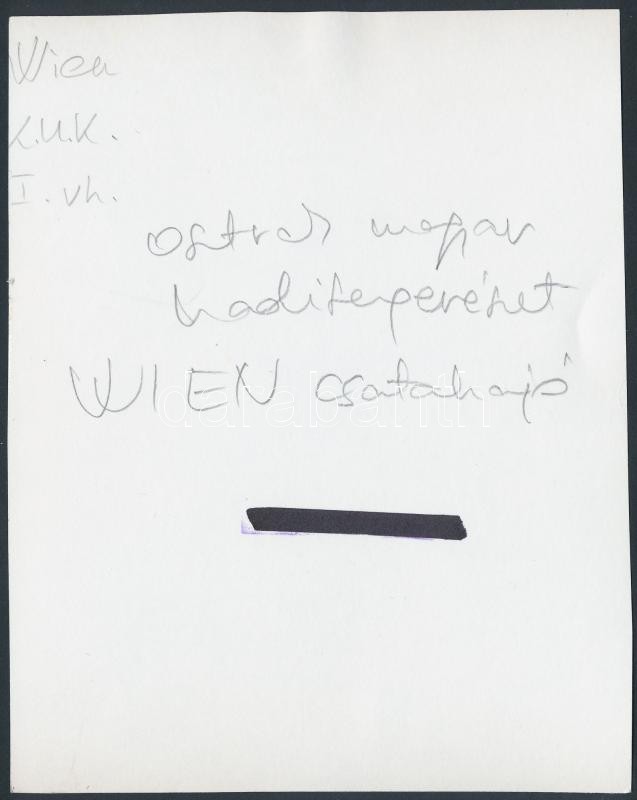 Wien
K.u.K.
I. vh.
osztrák magyar
haditengerészet
WIEN csatahajó
darabanth